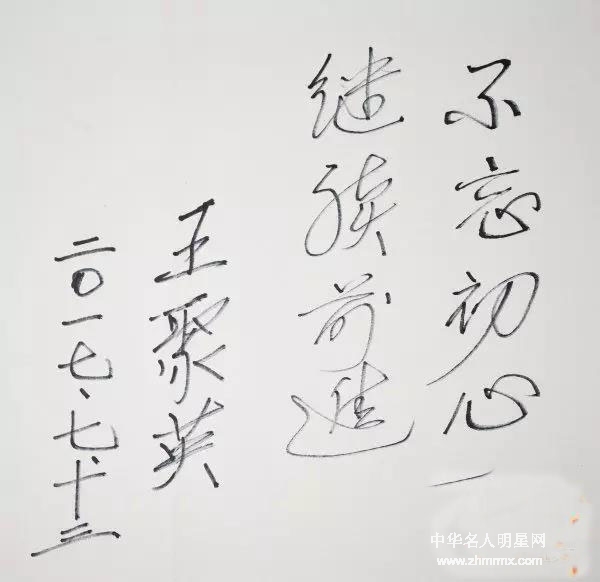 不忘初心一
继续前進
王聚英
二〇一七、七、十三
中华名人明星网
www.zhmmx.com